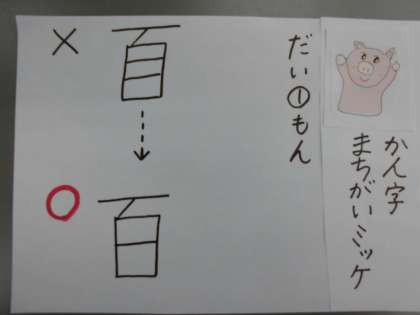 かん字
まちがいミッケ
だい①もん
×
○
百